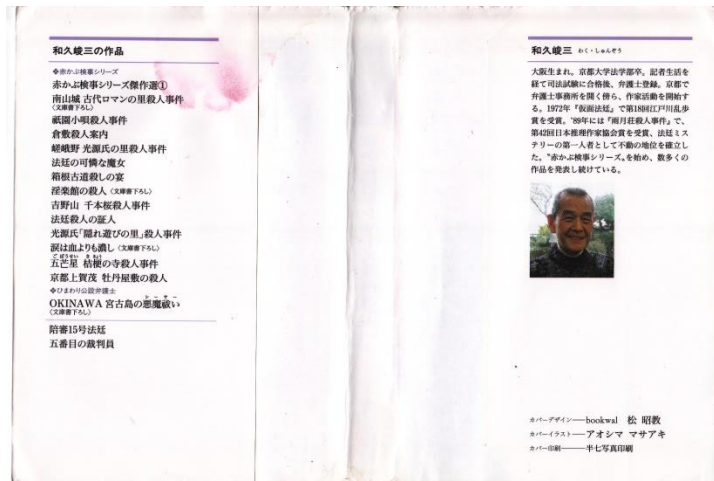 和久峻三の作品
❖赤かぶ検事シリーズ
赤かぶ検事シリーズ傑作選①
南山城 古代ロマンの里殺人事件
〈文庫書下ろし〉
祇園小唄殺人事件
倉敷殺人案内
嵯峨野 光源氏の里殺人事件
法廷の可憐な魔女
箱根古道殺しの宴
淫楽館の殺人〈文庫書下ろし〉
吉野山 千本桜殺人事件
法廷殺人の証人
光源氏「隠れ遊びの里」殺人事件
涙は血よりも濃し〈文庫書下ろし〉
ごぼうせい ききょう
五芒星 桔梗の寺殺人事件
京都上賀茂 牡丹屋敷の殺人
❖ひまわり公設弁護士
シーサー
OKINAWA 宮古島の悪魔祓い
〈文庫書下ろし〉
陪審15号法廷
五番目の裁判員
和久峻三 わく・しゅんぞう
大阪生まれ。京都大学法学部卒。記者生活を
経て司法試験に合格後、弁護士登録。京都で
弁護士事務所を開く傍ら、作家活動を開始す
る。1972年『仮面法廷』で第18回江戸川乱歩
賞を受賞。'89年には『雨月荘殺人事件』で、
第42回日本推理作家協会賞を受賞、法廷ミス
テリーの第一人者として不動の地位を確立し
た。〝赤かぶ検事シリーズ〟を始め、数多くの
作品を発表し続けている。
カバーデザイン──bookwal 松 昭教
カバーイラスト──アオシマ マサアキ
カバー印刷───半七写真印刷